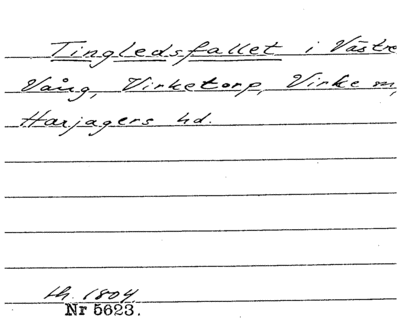 Tingledsfallet i Västre
Vång, Virketorp, Virke sn,
Harjagers hd.
th. 1804
Nr 5623.